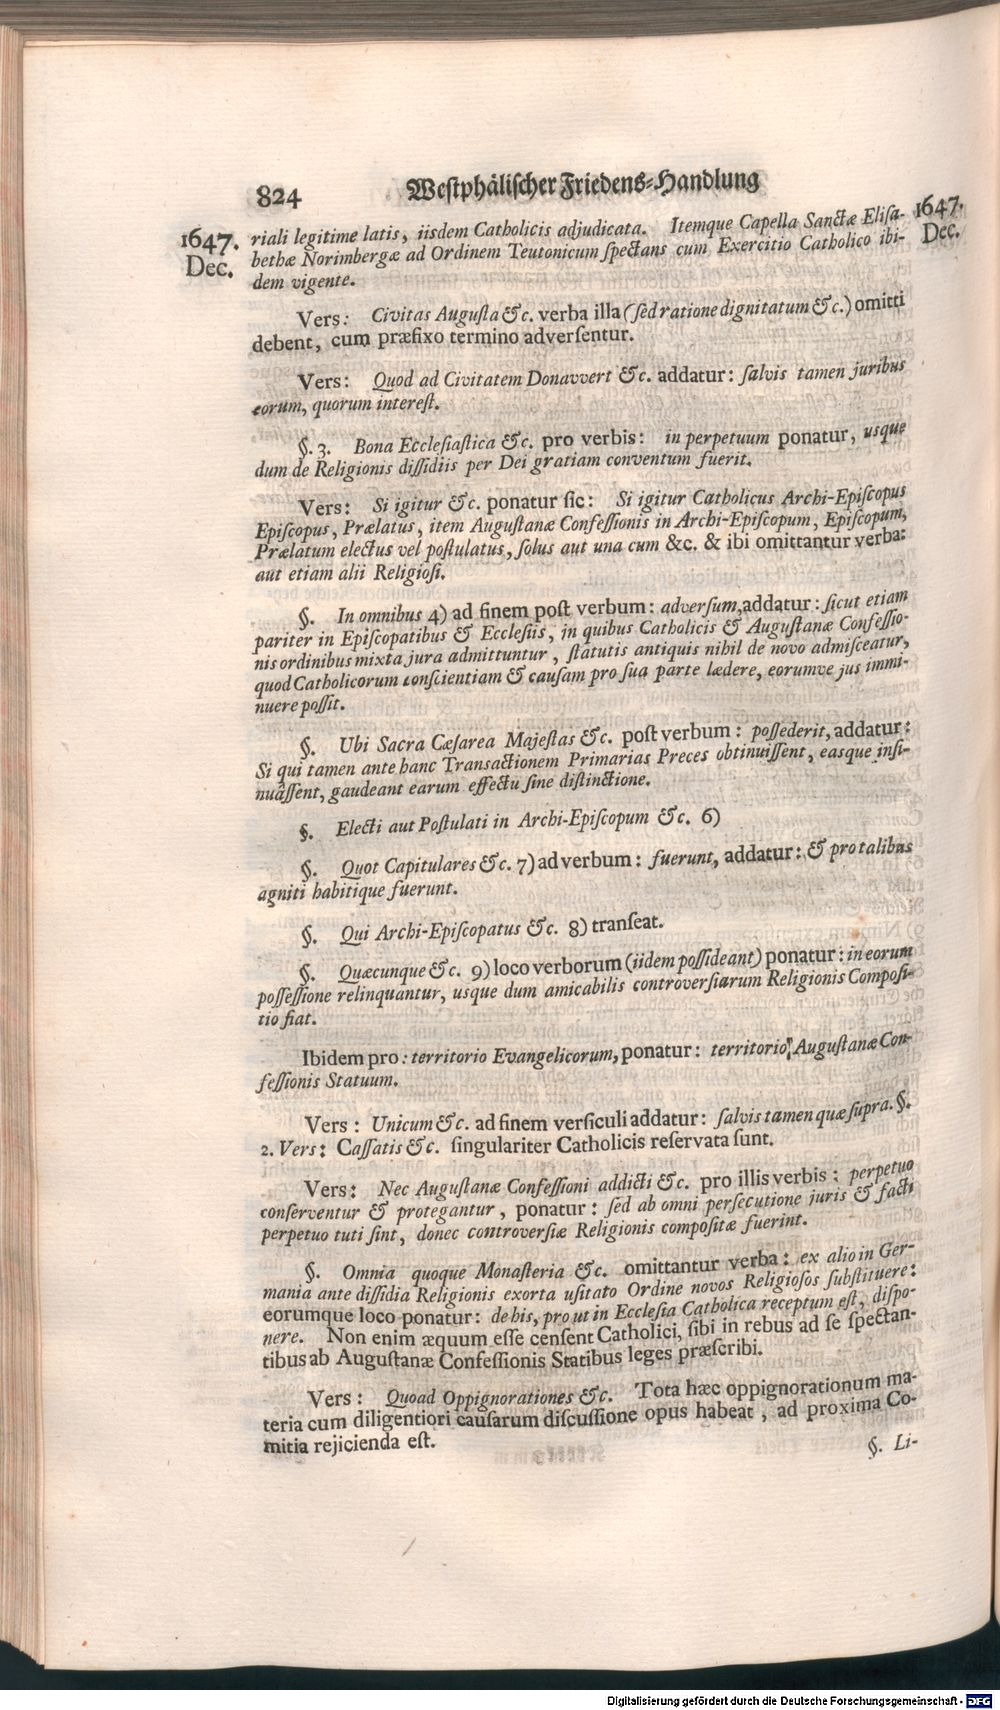 824 Westphälischer Friedens-Handlung
1647. Dec.
1647. Dec.
riali legitime latis, iisdem Catholicis adjudicata. Itemque Capella Sanctæ Elisa-
bethæ Norimbergæ ad Ordinem Teutonicum spectans cum Exercitio Catholico ibi-
dem vigente.
Vers: Civitas Augusta &c. verba illa (sed ratione dignitatum &c.) omitti
debent, cum præfixo termino adversentur.
Vers: Quod ad Civitatem Donavvert &c. addatur: salvis tamen juribus
eorum, quorum interest.
§. 3. Bona Ecclesiastica &c. pro verbis: in perpetuum ponatur, usque
dum de Religionis dissidiis per Dei gratiam conventum fuerit.
Vers: Si igitur &c. ponatur sic: Si igitur Catholicus Archi-Episcopus
Episcopus, Prælatus, item Augustanæ Confessionis in Archi-Episcopum, Episcopum,
Prælatum electus vel postulatus, solus aut una cum &c. & ibi omittantur verba:
aut etiam alii Religiosi.
§. In omnibus 4) ad finem post verbum: adversum, addatur: sicut etiam
pariter in Episcopatibus & Ecclesiis, in quibus Catholicis & Augustanæ Confessio-
nis ordinibus mixta jura admittuntur, statutis antiquis nihil de novo admisceatur,
quod Catholicorum conscientiam & causam pro sua parte lædere, eorumve jus immi-
nuere possit.
§. Ubi Sacra Cæsarea Majestas &c. post verbum: possederit, addatur:
Si qui tamen ante hanc Transactionem Primarias Preces obtinuissent, easque insi-
nuâssent, gaudeant earum effectu sine distinctione.
§. Electi aut Postulati in Archi-Episcopum &c. 6)
§. Quot Capitulares &c. 7) ad verbum: fuerunt, addatur: & pro talibus
agniti habitique fuerunt.
§. Qui Archi-Episcopatus &c. 8) transeat.
§. Quæcunque &c. 9) loco verborum (iidem possideant) ponatur: in eorum
possessione relinquantur, usque dum amicabilis controversiarum Religionis Composi-
tio fiat.
Ibidem pro: territorio Evangelicorum, ponatur: territorio Augustanæ Con-
fessionis Statuum.
Vers: Unicum &c. ad finem versiculi addatur: salvis tamen quæ supra. §.
2. Vers: Cassatis &c. singulariter Catholicis reservata sunt.
Vers: Nec Augustanæ Confessioni addicti &c. pro illis verbis: perpetuo
conserventur & protegantur, ponatur: sed ab omni persecutione juris & facti
perpetuo tuti sint, donec controversiæ Religionis compositæ fuerint.
§. Omnia quoque Monasteria &c. omittantur verba: ex alio in Ger-
mania ante dissidia Religionis exorta usitato Ordine novos Religiosos substituere:
eorumque loco ponatur: de his, pro ut in Ecclesia Catholica receptum est, dispo-
nere. Non enim æquum esse censent Catholici, sibi in rebus ad se spectan-
tibus ab Augustanæ Confessionis Statibus leges præscribi.
Vers: Quoad Oppignorationes &c. Tota hæc oppignorationum ma-
teria cum diligentiori causarum discussione opus habeat, ad proxima Co-
mitia rejicienda est.
§. Li-
Digitalisierung gefördert durch die Deutsche Forschungsgemeinschaft - DFG